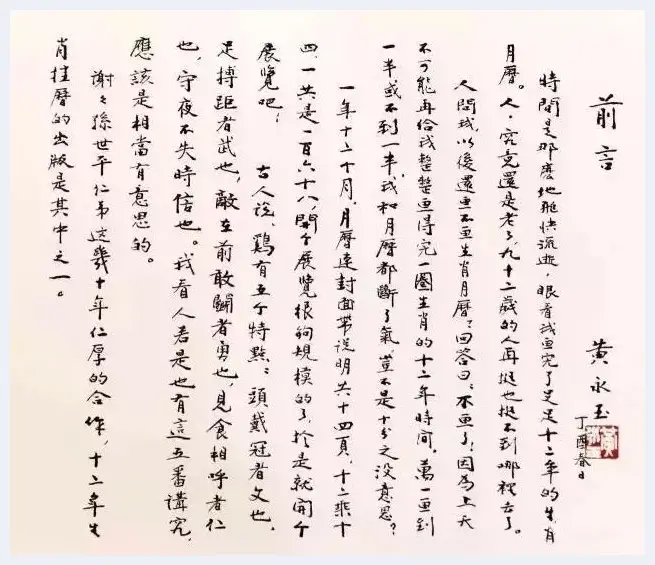 前言
黃永玉
丁酉春日
時間是那麼地飛快流逝,眼看我畫完了足足十二年的生肖
月曆。人,究竟還是老了,九十二歲的人再挺也挺不到哪裡去了。
人問我,以後還畫不畫生肖月曆?回答曰:不畫了;因為上天
不可能再給我整整畫得完一圈生肖的十二年時間。萬一畫到
一半或不到一半,我和月曆都斷了氣,豈不是十分之沒意思?
一年十二个月,月曆連封面帶說明共十四頁,十二乘十
四,一共是一百六十八,開个展覽很夠規模的了,於是就開个
展覽吧!古人說,鷄有五个特點:頭戴冠者文也,
足搏距者武也,敵在前敢鬭者勇也,見食相呼者仁
也,守夜不失時信也。我看人若是也有這五番講究,
應該是相當有意思的。
謝々孫世平仁弟這幾十年仁厚的合作,十二年生
肖挂曆的出版是其中之一。